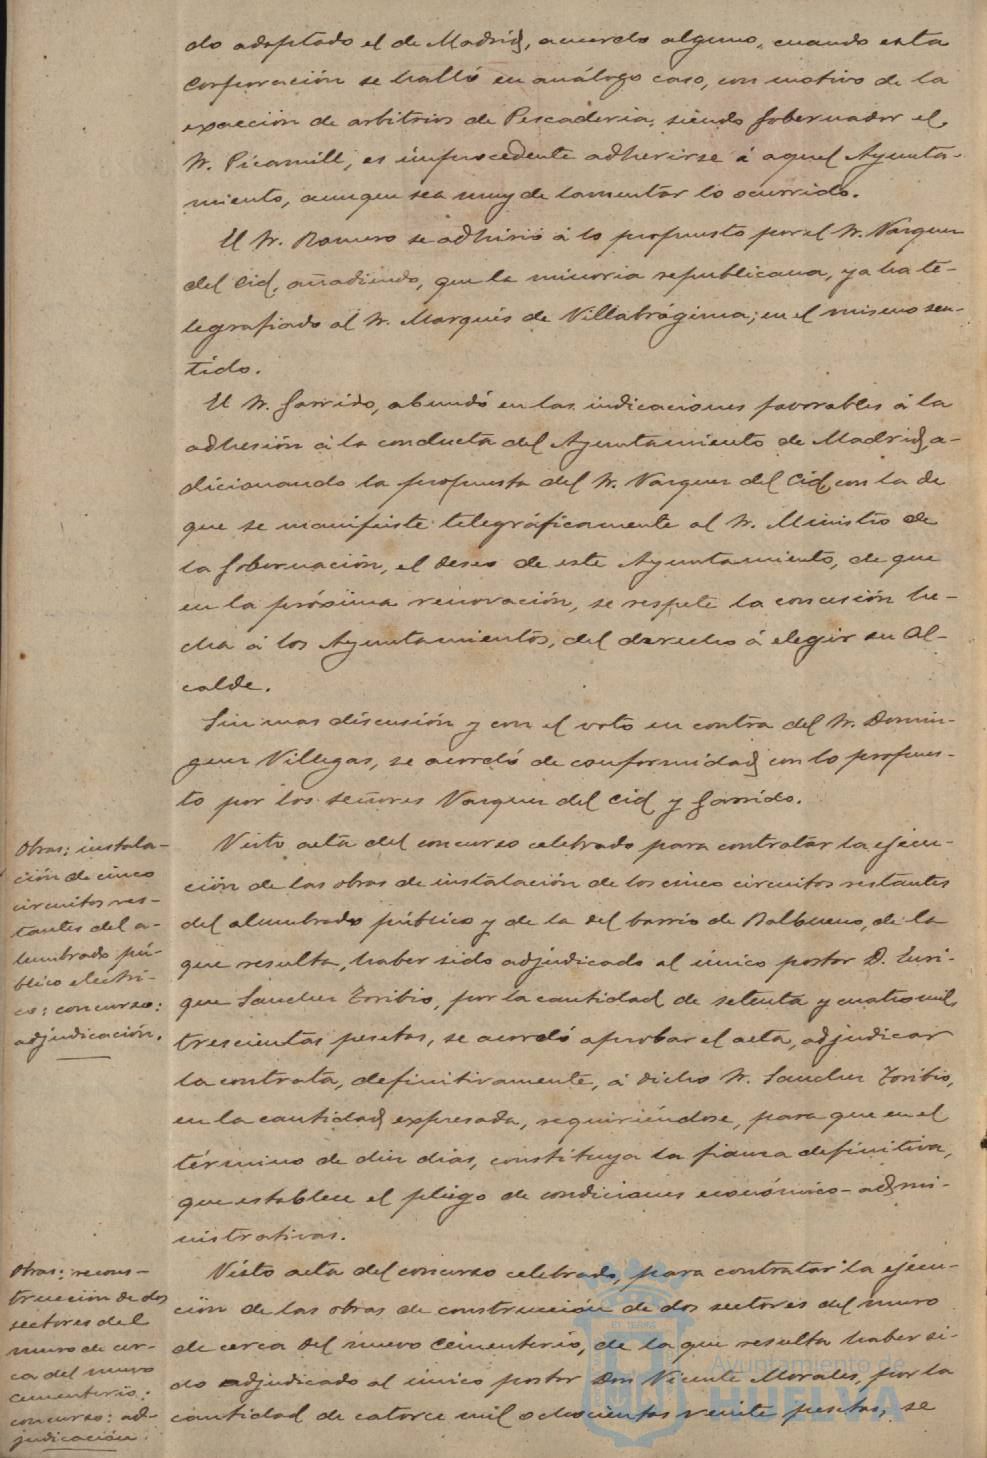 do adoptado el de Madrid, acuerdo alguno, cuando esta
Corporación se halló en análogo caso, con motivo de la
exacción de arbitrios de Pescaderia, siendo Gobernador el
Sr. Picamill, es improcedente adherirse á aquel Ayunta-
miento, aunque sea muy de lamentar lo ocurrido.
El Sr. Romero se adhirió á lo propuesto por el Sr. Vazquez
del Cid, añadiendo, que la minoria republicana, ya ha te-
legrafiado al Sr. Marqués de Villabrágima; en el mismo sen-
tido.
El Sr. Garrido, abundó en las indicaciones favorables á la
adhesión á la conducta del Ayuntamiento de Madrid, a-
dicionando la propuesta del Sr. Vazquez del Cid, con la de
que se manifieste telegráficamente al Sr. Ministro de
la Gobernación, el deseo de este Ayuntamiento, de que
en la próxima renovación, se respete la concesión he-
cha á los Ayuntamientos, del derecho á elegir su Al-
calde.
Sin mas discusión y con el voto en contra del Sr. Domin-
guez Villegas, se acordó de conformidad con lo propues-
to por los señores Vazquez del Cid y Garrido.
Obras: instala-
ción de cinco
circuitos res-
tantes del a-
lumbrado pú-
blico electri-
co: concurso:
adjudicación.
Visto acta del concurso celebrado para contratar la ejecu-
ción de las obras de instalación de los cinco circuitos restantes
del alumbrado público y de la del barrio de Balbueno, de la
que resulta, haber sido adjudicado al único postor D. Enri-
que Sanchez Toribio, por la cantidad de setenta y cuatro mil
trescientas pesetas, se acordó aprobar el acta, adjudicar
la contrata, definitivamente, á dicho Sr. Sanchez Toribio,
en la cantidad expresada, requiriéndose, para que en el
término de diez dias, constituya la fianza definitiva,
que establece el pliego de condiciones económico-admi-
nistrativas.
Obras: recons-
trucción de dos
sectores del
muro de cer-
ca del nuevo
cementerio:
concurso: ad-
judicación.
Visto acta del concurso celebrado, para contratar la ejecu-
ción de las obras de construcción de dos sectores del muro
de cerca del nuevo Cementerio, de la que resulta haber si-
do adjudicado al único postor Don Vicente Morales, por la
cantidad de catorce mil ochocientas veinte pesetas, se
Ayuntamiento de
HUELVA